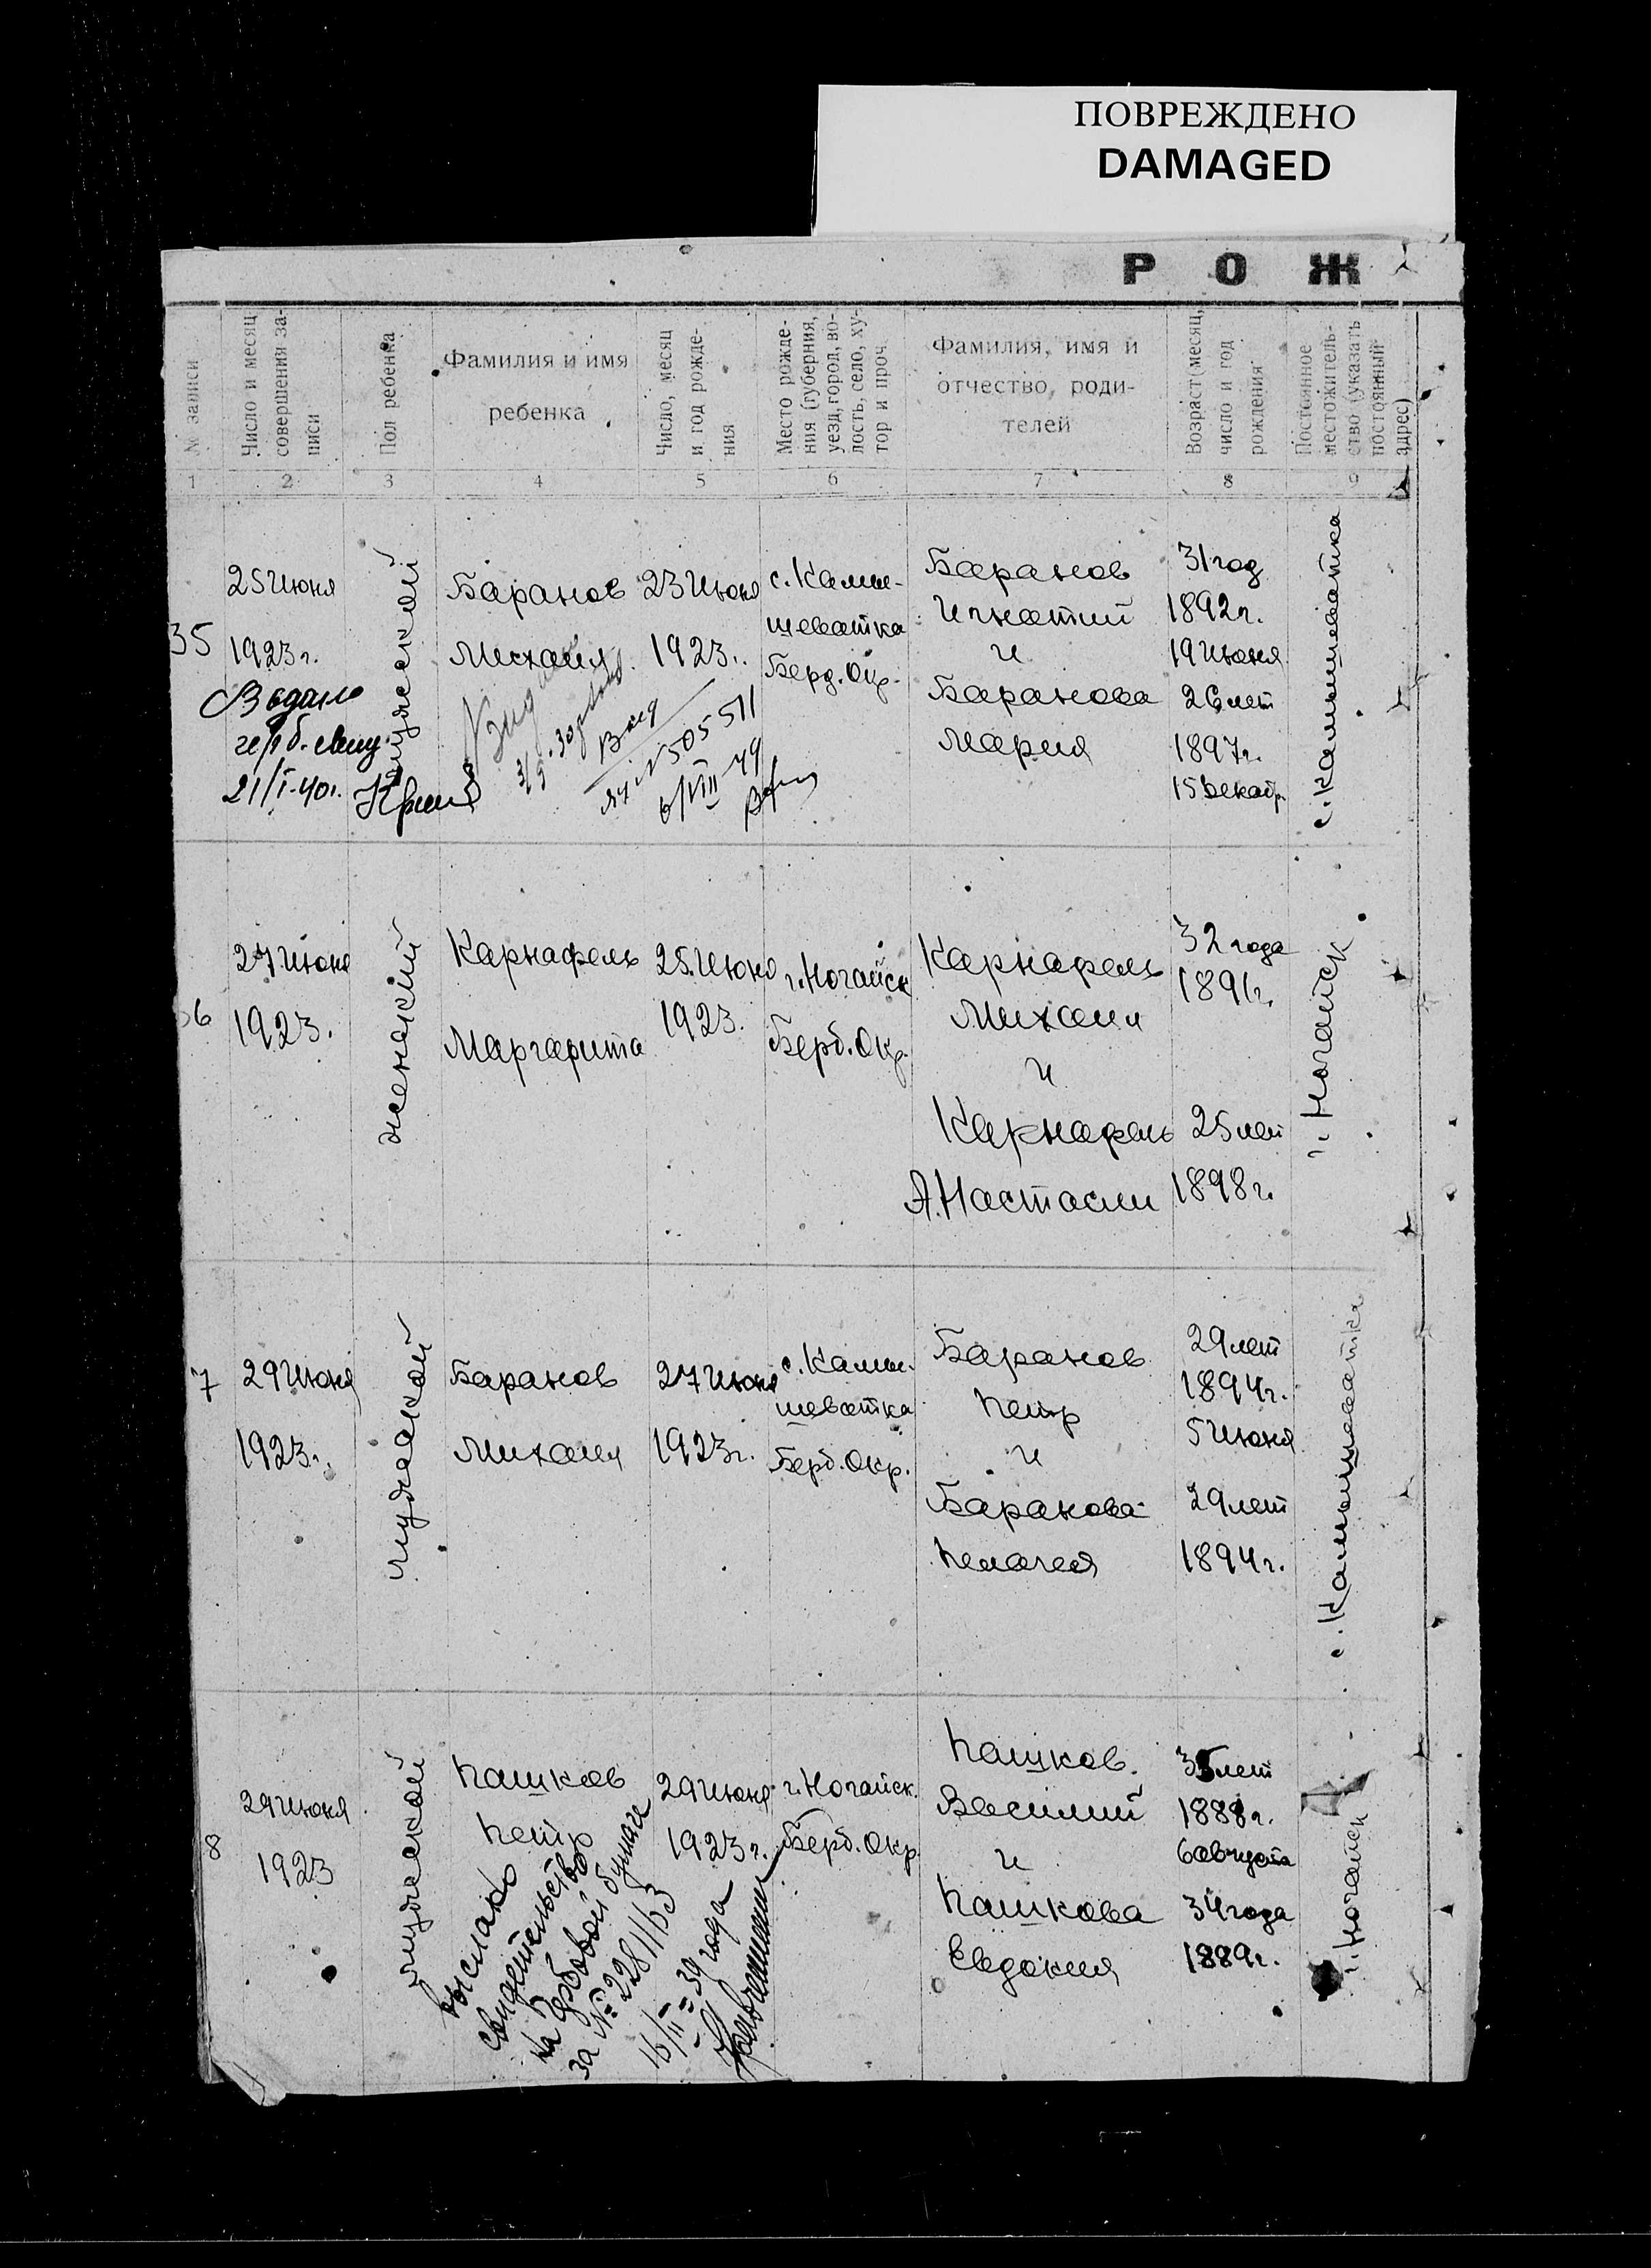 ПОВРЕЖДЕНО
DAMAGED
Р О Ж
№ записи
Число и месяц
совершения за-
писи
Пол ребенка
Фамилия и имя
ребенка
Число, месяц
и год рожде-
ния
Место рожде-
ния (губерния,
уезд, город, во-
лость, село, ху-
тор и проч.
Фамилия, имя и
отчество, роди-
телей
Возраст (месяц,
число и год
рождения
Постоянное
местожитель-
ство (указать
постоянный
адрес)
1 2 3 4 5 6 7 8 9
35
25 Июня
1923 г.
мужеский
Баранов
Михаил
23 Июня
1923 г.
с. Камы-
шеватка
Берд. Окр.
Баранов
Игнатий
и
Баранова
Мария
31 год
1892 г.
19 Июня
26 лет
1897 г.
15 Декабр.
с. Камышеватка
Выдано
герб. свид.
21/I-40 г.
N 505511
6/VIII 49
36
27 Июня
1923.
женский
Карнафель
Маргарита
25 Июня
1923.
г. Ногайск
Берд. Окр.
Карнафель
Михаил
и
Карнафель
А.Настасии
32 года
1891 г.
25 лет
1898 г.
г. Ногайск
7
29 Июня
1923 г.
мужеский
Баранов
Михаил
27 Июня
1923 г.
с. Камы-
шеватка
Берд. Окр.
Баранов
Петр
и
Баранова
Пелагея
29 лет
1894 г.
5 Июня
29 лет
1894 г.
с. Камышеватка
8
29 Июня
1923
мужеский
Пашков
Петр
29 Июня
1923 г.
г. Ногайск.
Берд. Окр.
Пашков
Василий
и
Пашкова
Евдокия
35 лет
1888 г.
6 августа
34 года
1889 г.
г. Ногайск
выслано
свидетельство
на гербовой бумаге
за № 2281163
16/II = 39 года